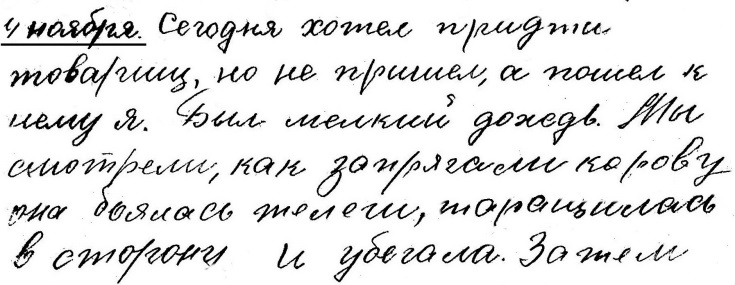 4 ноября. Сегодня хотел придти
товарищ, но не пришел, а пошел к
нему я. Был мелкий дождь. Мы
смотрели, как запрягали корову
она боялась телеги, таращилась
в сторону и убегала. Затем